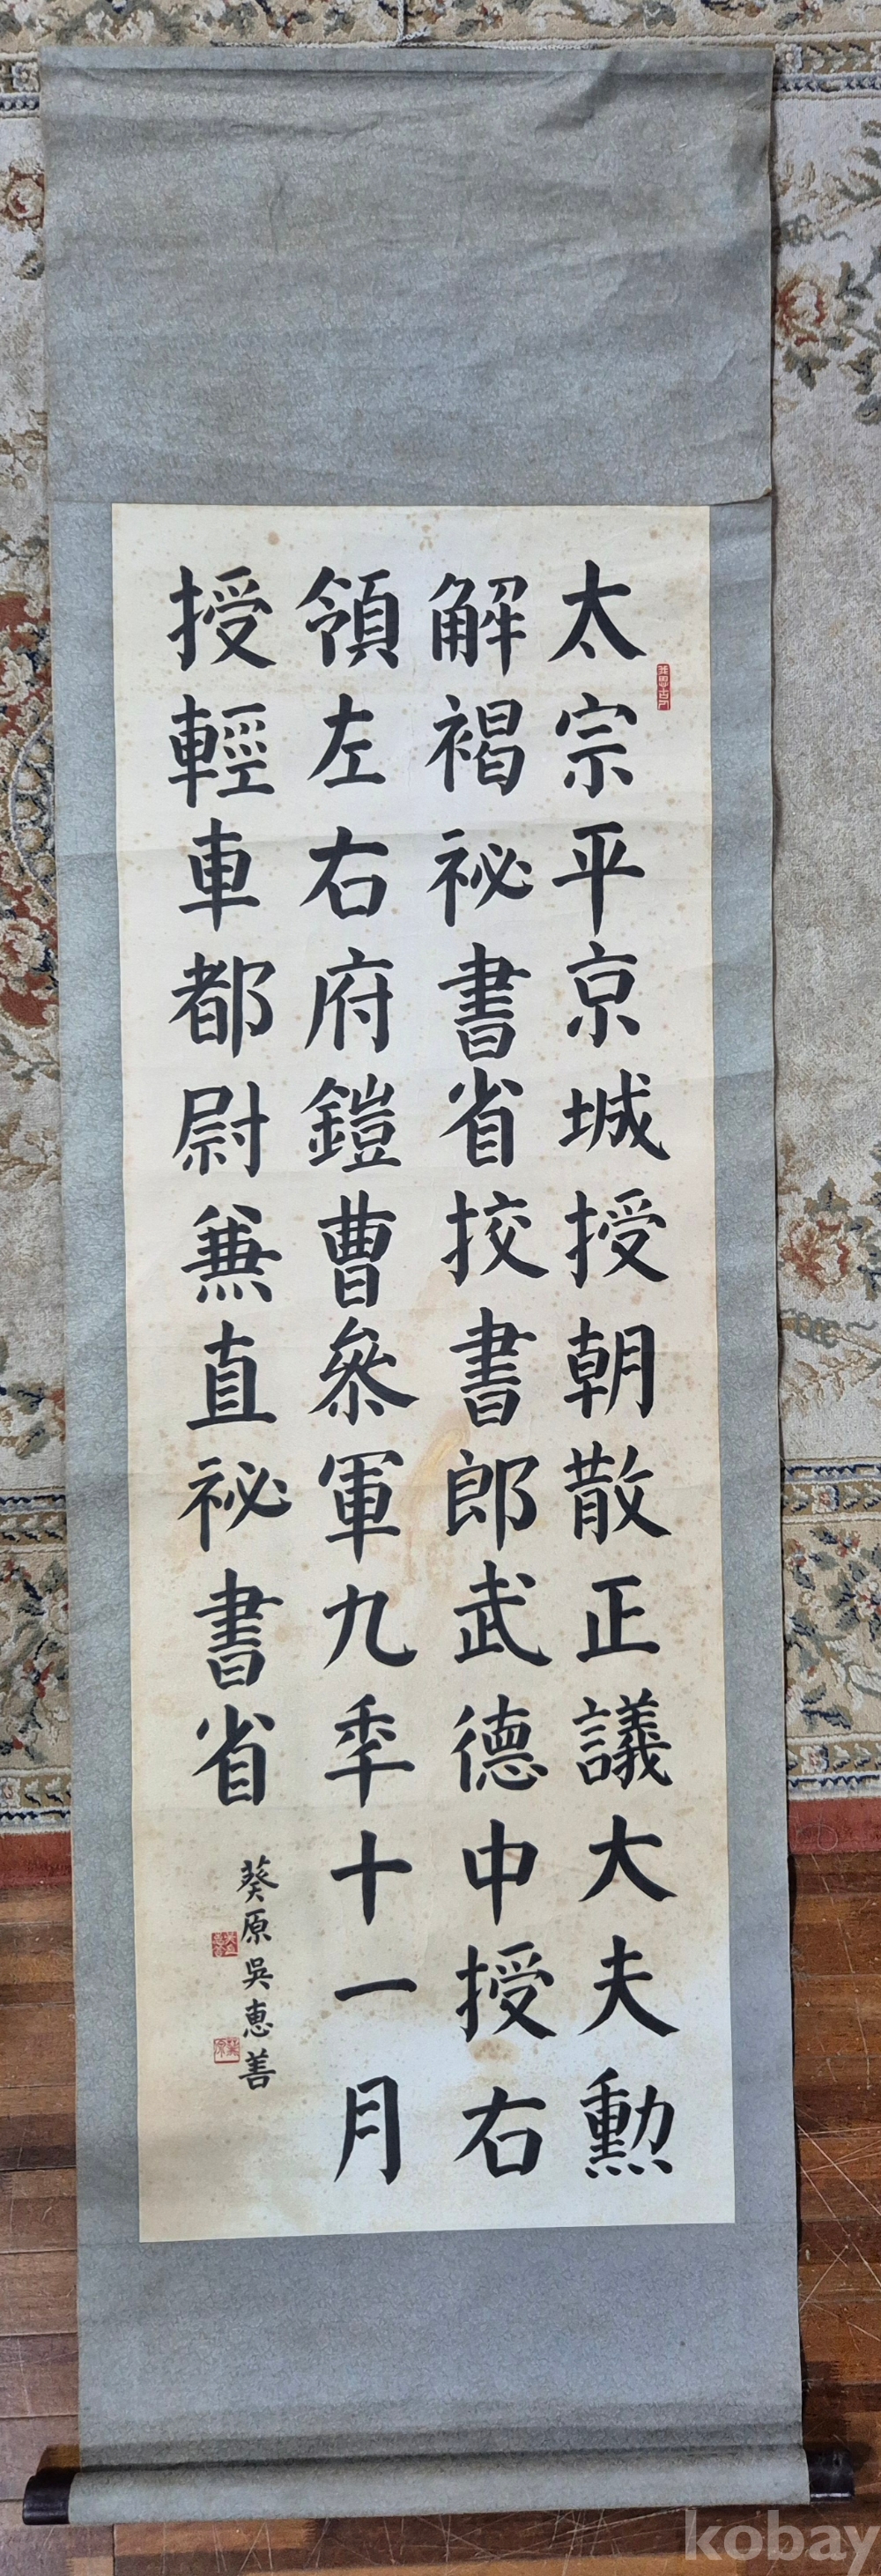 太宗平京城授朝散正議大夫勲
解褐祕書省挍書郎武德中授右
領左右府鎧曹叅軍九秊十一月
授輕車都尉兼直祕書省
葵原吳惠善
kobay